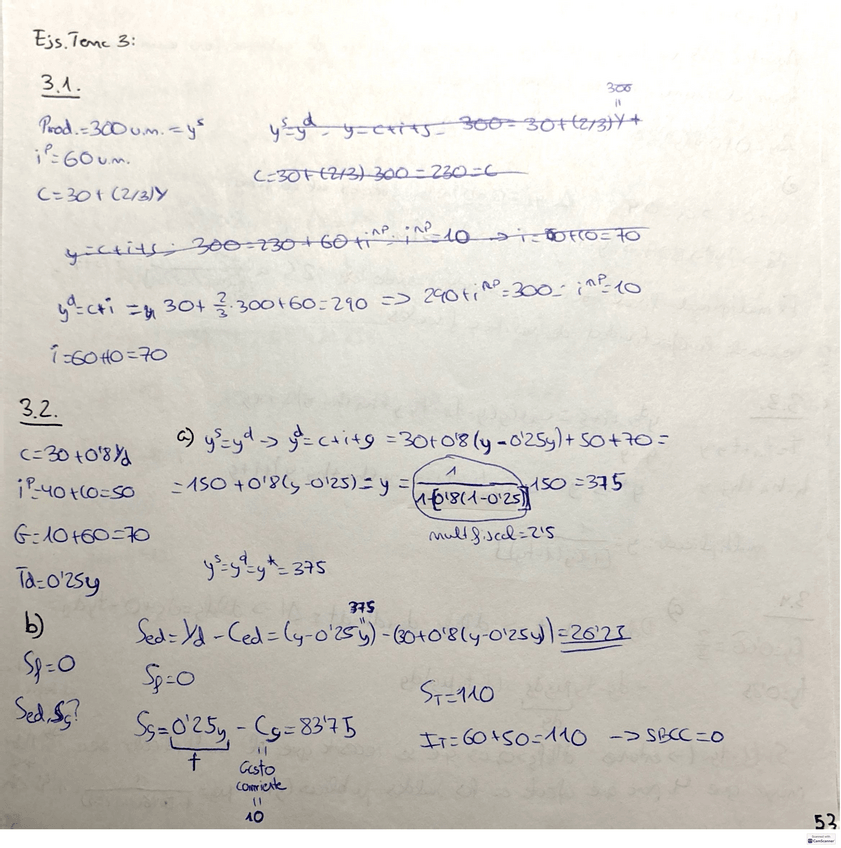 Ejs. Tema 3:
3.1.
Prod.=300 u.m. = yˢ
iᴾ=60 u.m.
C=30+(2/3)Y
300
"
yˢ=yᵈ - y=c+i+s - 300=30+(2/3)Y+
C=30+(2/3)·300=230=C
y=c+i+s - 300=230+60+iⁿᴾ - iⁿᴾ=10 → i=60+10=70
yᵈ=c+i = 30+2/3·300+60=290 => 290+iⁿᴾ=300 - iⁿᴾ=10
i=60+10=70
3.2.
C=30+0'8Yd
iᴾ=40+10=50
G=10+60=70
Td=0'25y
a) yˢ=yᵈ → yᵈ=c+i+g = 30+0'8(y-0'25y)+50+70=
=150+0'8(y-0'25)=y= 1/1-[0'8(1-0'25)] ·150=375
mult fiscal=2'5
yˢ=yᵈ=y*=375
b)
Sf=0
Sed, Sg?
375
"
Sed=Yd-Ced=(y-0'25y)-(30+0'8(y-0'25y))=26'25
Sf=0
Sg=0'25y - Cg=83'75
t
"
Gasto
corriente
"
10
S_T=110
I_T=60+50=110 → SBCC=0
53
CamScanner